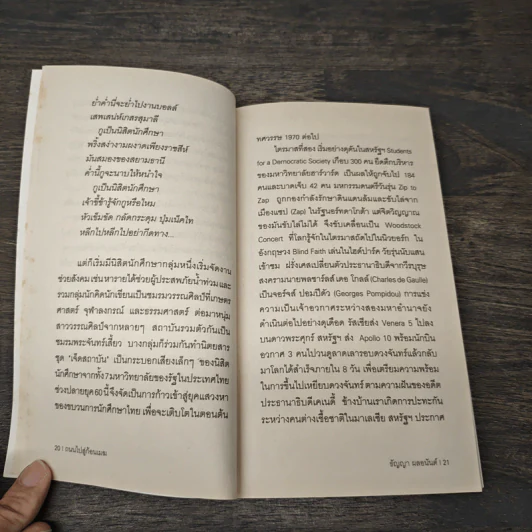 ย่ำค่ำนี่จะย่ำไปงานบอลล์
เสพเสน่ห์เกสรสุมาลี
กูเป็นนิสิตนักศึกษา
พริ้งสง่างามผงาดเพียงราชสีห์
มันสมองของสยามธานี
ค่ำนี้กูจะนาบให้หนำใจ
กูเป็นนิสิตนักศึกษา
เจ้าขี้ข้ารู้จักกูหรือไหม
หัวเข็มขัด กลัดกระดุม ปุ่มเน็คไท
หลีกไปหลีกไปอย่ากีดทาง...
แต่ก็เริ่มมีนิสิตนักศึกษากลุ่มหนึ่งเริ่มจัดงาน
ช่วยสังคมเช่นหารายได้ช่วยผู้ประสพภัยน้ำท่วม และ
รวมกลุ่มนักคิดนักเขียนเป็นชมรมวรรณศิลป์ที่เกษตร
ศาสตร์ จุฬาลงกรณ์ และธรรมศาสตร์ ต่อมาหนุ่ม
สาววรรณศิลป์จากหลายๆ สถาบันรวมตัวกันเป็น
ชมรมพระจันทร์เสี้ยว บางกลุ่มก็ร่วมกันทำนิตยสาร
ชุด "เจ็ดสถาบัน" เป็นกระบอกเสียงเล็กๆ ของนิสิต
นักศึกษาจากทั้ง 7 มหาวิทยาลัยของรัฐในประเทศไทย
ช่วงปลายยุค 60 นี้จึงจัดเป็นการก้าวเข้าสู่ยุคแสวงหา
ของขบวนการนักศึกษาไทย เพื่อจะเติบโตในตอนต้น
20 | ถนนไปสู่ก้อนเมฆ
ทศวรรษ 1970 ต่อไป
ไตรมาสที่สอง เริ่มอย่างดุดันในสหรัฐฯ Students
for a Democratic Society เกือบ 300 คน ยึดตึกบริหาร
ของมหาวิทยาลัยฮาร์วาร์ด เป็นผลให้ถูกจับไป 184
คนและบาดเจ็บ 42 คน มหกรรมดนตรีวัยรุ่น Zip to
Zap ถูกกองกำลังรักษาดินแดนล้มและขับไล่จาก
เมืองแซป (Zap) ในรัฐนอร์ทดาโกต้า แต่จิตวิญญาณ
ของมันขับไล่ไม่ได้ จึงขับเคลื่อนเป็น Woodstock
Concert ที่โลกรู้จักในไตรมาสถัดไปในนิวยอร์ก ใน
อังกฤษวง Blind Faith เล่นในไฮด์ปาร์ค วัยรุ่นนับแสน
เข้าชม ฝรั่งเศสเปลี่ยนตัวประธานาธิบดีจากวีรบุรุษ
สงครามนายพลชาร์ลส์ เดอ โกลล์ (Charles de Gaulle)
เป็นจอร์จส์ ปอมปิดัว (Georges Pompidou) การแข่ง
ความเป็นเจ้าอวกาศระหว่างสองมหาอำนาจยัง
ดำเนินต่อไปอย่างดุเดือด รัสเซียส่ง Venera 5 ไปลง
บนดาวพระศุกร์ สหรัฐฯ ส่ง Apollo 10 พร้อมนักบิน
อวกาศ 3 คนไปวนดูลาดเลารอบดวงจันทร์แล้วกลับ
มาโลกได้สำเร็จภายใน 8 วัน เพื่อเตรียมความพร้อม
ในการขึ้นไปเหยียบดวงจันทร์ ตามความฝันของอดีต
ประธานาธิบดีเคนเนดี้ ข้างบ้านเราเกิดการปะทะกัน
ระหว่างคนต่างเชื้อชาติในมาเลเซีย สหรัฐฯ ประกาศ
ธัญญา ผลอนันต์ | 21